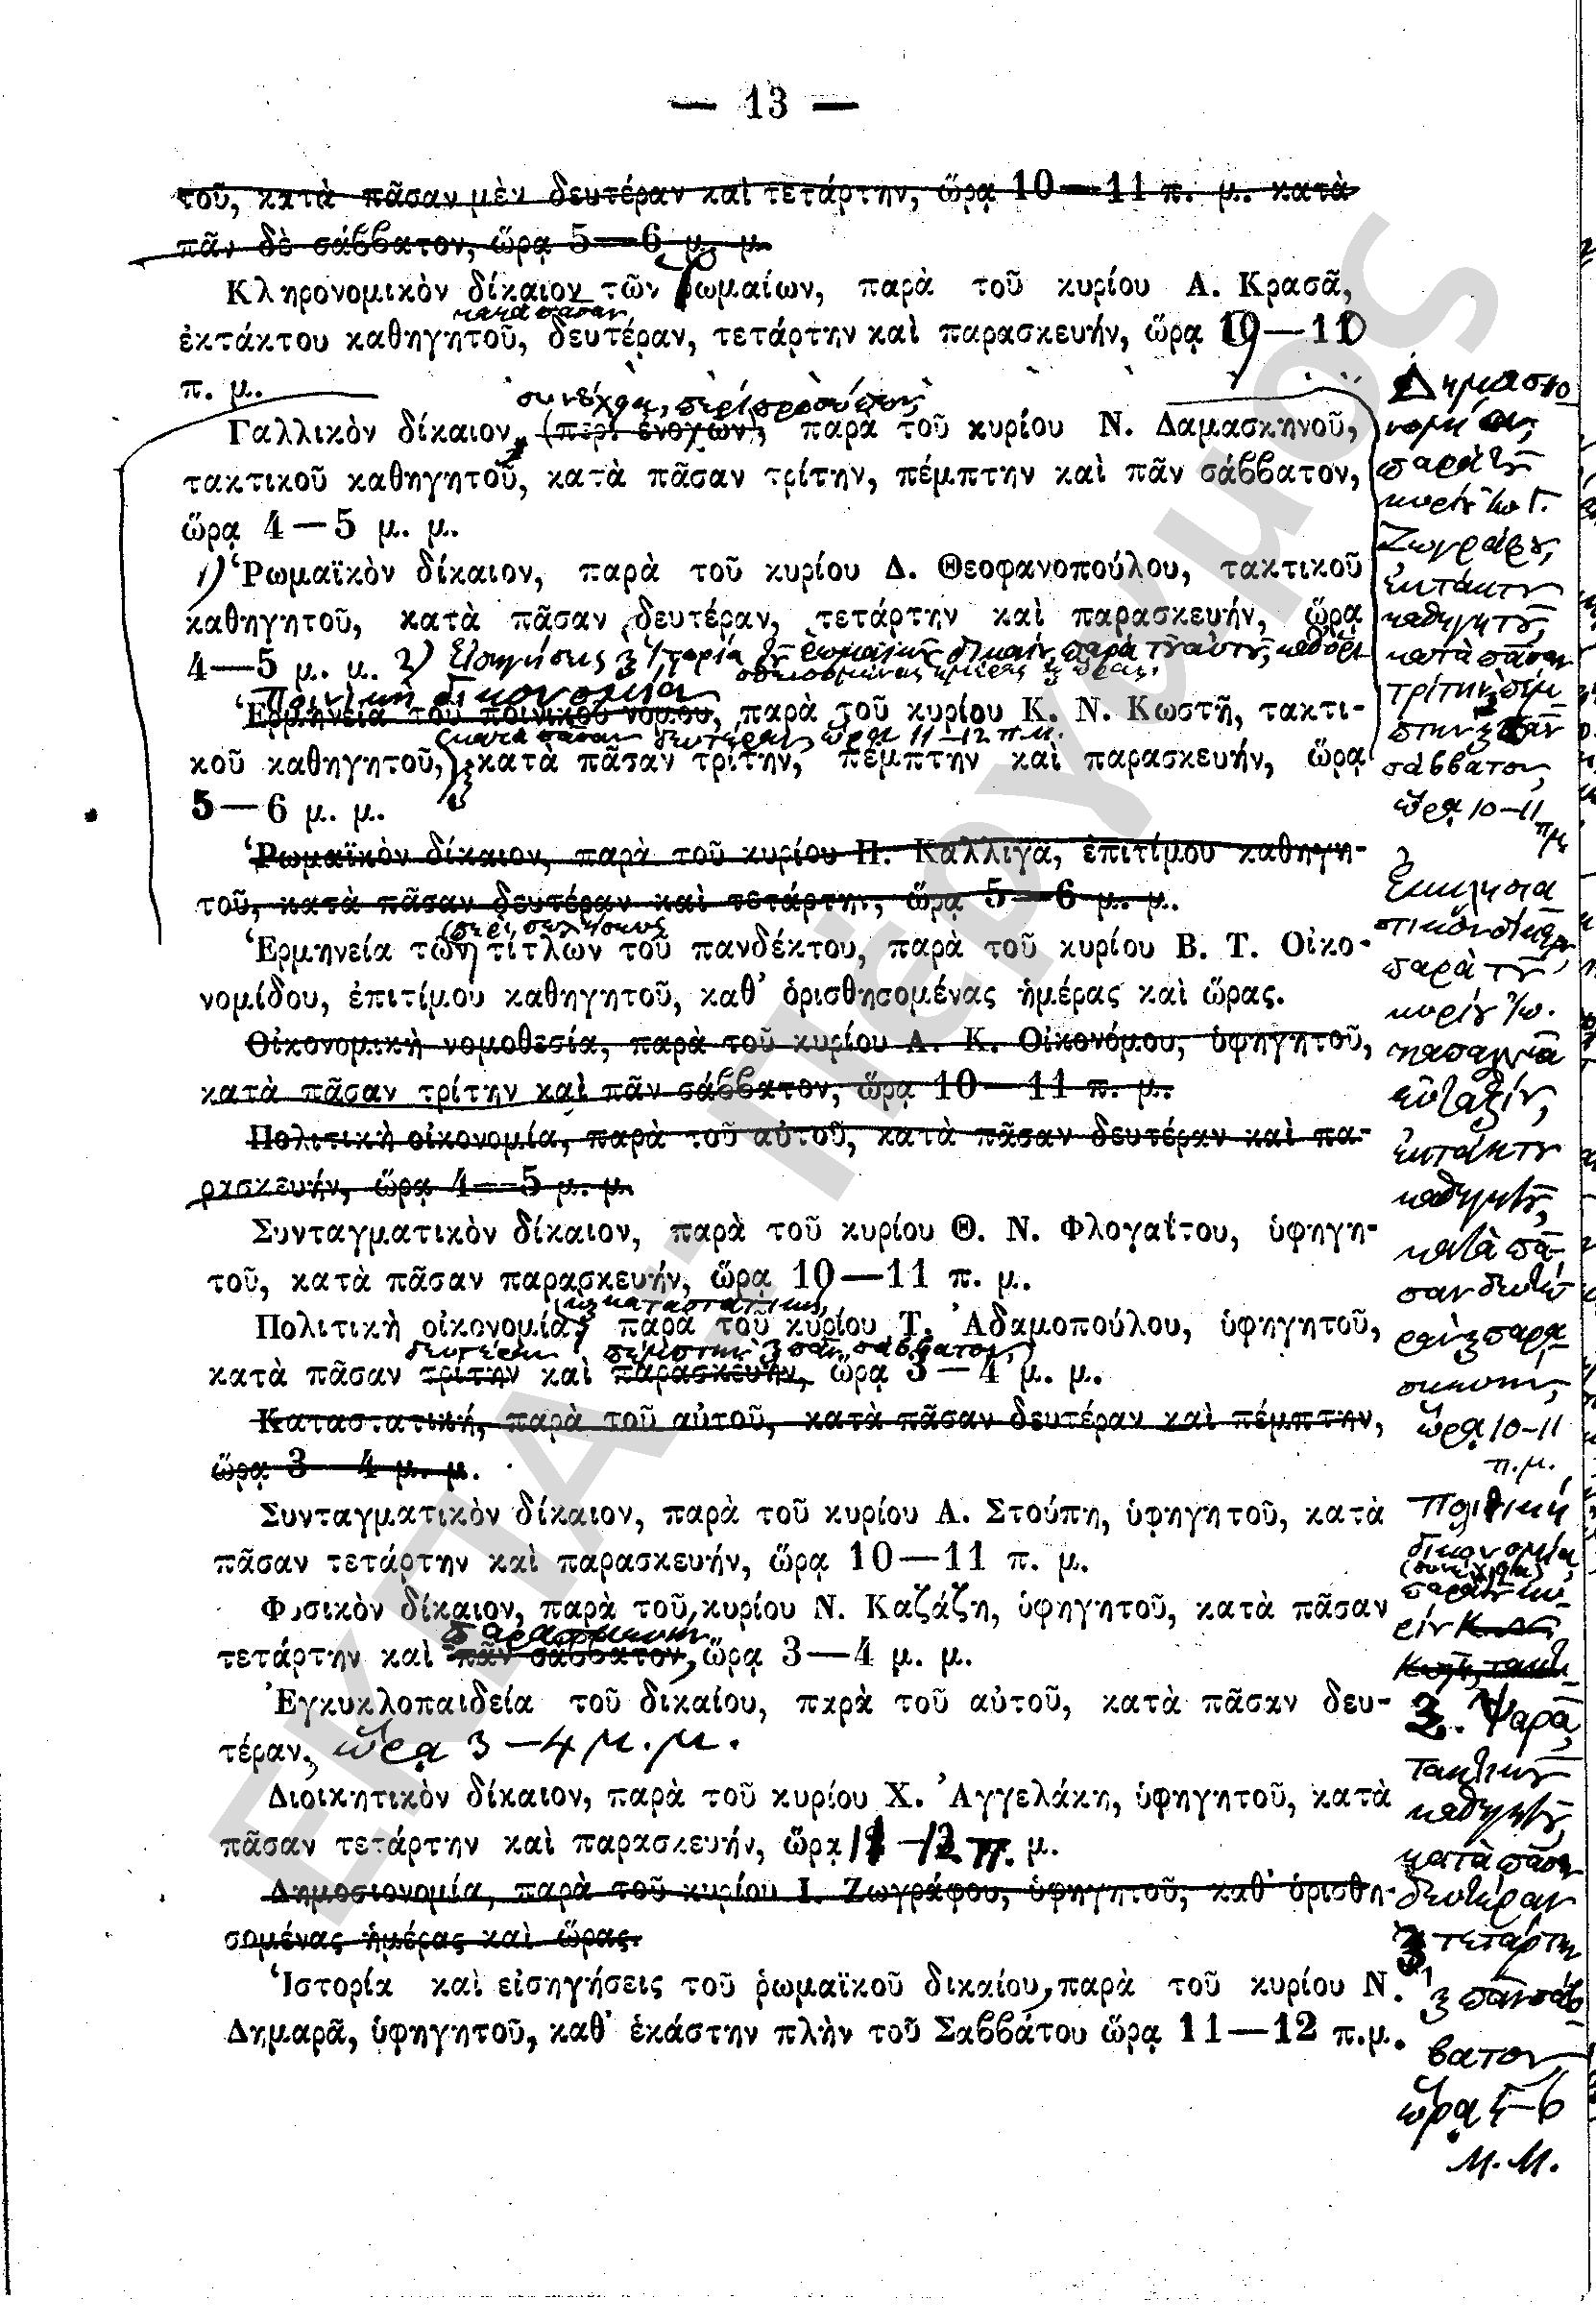 — 13 —
τοῦ, κατὰ πᾶσαν μὲν δευτέραν καὶ τετάρτην, ὥρᾳ 10—11 π. μ. κατὰ
πᾶν δὲ σάββατον, ὥρᾳ 5—6 μ. μ.
Κληρονομικὸν δίκαιον τῶν ῥωμαίων, παρὰ τοῦ κυρίου Α. Κρασᾶ,
κατὰ πᾶσαν
ἐκτάκτου καθηγητοῦ, δευτέραν, τετάρτην καὶ παρασκευήν, ὥρᾳ 10—11
π. μ.
συνέχεια, περὶ προσώπων
Γαλλικὸν δίκαιον, (περὶ ἐνοχῶν), παρὰ τοῦ κυρίου Ν. Δαμασκηνοῦ,
τακτικοῦ καθηγητοῦ, κατὰ πᾶσαν τρίτην, πέμπτην καὶ πᾶν σάββατον,
ὥρᾳ 4—5 μ. μ.
1) Ῥωμαϊκὸν δίκαιον, παρὰ τοῦ κυρίου Δ. Θεοφανοπούλου, τακτικοῦ
καθηγητοῦ, κατὰ πᾶσαν δευτέραν, τετάρτην καὶ παρασκευήν, ὥρᾳ
4—5 μ. μ. 2) Εἰσηγήσεις ϗ Ἱστορία τοῦ ῥωμαϊκοῦ δικαίου, παρὰ τοῦ αὐτοῦ, καθ' ὁρι-
σθησομένας ἡμέρας ϗ ὥρας.
Ποινικὴ δικονομία
Ἑρμηνεία τοῦ ποινικοῦ νόμου, παρὰ τοῦ κυρίου Κ. Ν. Κωστῆ, τακτι-
κατὰ πᾶσαν δευτέραν, ὥρᾳ 11—12 π.μ.
κοῦ καθηγητοῦ, κατὰ πᾶσαν τρίτην, πέμπτην καὶ παρασκευήν, ὥρᾳ
5—6 μ. μ.
Ῥωμαϊκὸν δίκαιον, παρὰ τοῦ κυρίου Π. Καλλιγᾶ, ἐπιτίμου καθηγη-
τοῦ, κατὰ πᾶσαν δευτέραν καὶ τετάρτην, ὥρᾳ 5—6 μ. μ.
Ἑρμηνεία τῶν τίτλων τοῦ πανδέκτου, παρὰ τοῦ κυρίου Β. Τ. Οἰκο-
νομίδου, ἐπιτίμου καθηγητοῦ, καθ' ὁρισθησομένας ἡμέρας καὶ ὥρας.
Οἰκονομικὴ νομοθεσία, παρὰ τοῦ κυρίου Α. Κ. Οἰκονόμου, ὑφηγητοῦ,
κατὰ πᾶσαν τρίτην καὶ πᾶν σάββατον, ὥρᾳ 10—11 π. μ.
Πολιτικὴ οἰκονομία, παρὰ τοῦ αὐτοῦ, κατὰ πᾶσαν δευτέραν καὶ πα-
ρασκευήν, ὥρᾳ 4—5 μ. μ.
Συνταγματικὸν δίκαιον, παρὰ τοῦ κυρίου Θ. Ν. Φλογαΐτου, ὑφηγη-
τοῦ, κατὰ πᾶσαν παρασκευήν, ὥρᾳ 10—11 π. μ.
ϗ καταστατική,
Πολιτικὴ οἰκονομία, παρὰ τοῦ κυρίου Τ. Ἀδαμοπούλου, ὑφηγητοῦ,
δευτέραν πέμπτην ϗ πᾶν σάββατον,
κατὰ πᾶσαν τρίτην καὶ παρασκευήν, ὥρᾳ 3—4 μ. μ.
Καταστατική, παρὰ τοῦ αὐτοῦ, κατὰ πᾶσαν δευτέραν καὶ πέμπτην,
ὥρᾳ 3—4 μ. μ.
Συνταγματικὸν δίκαιον, παρὰ τοῦ κυρίου Α. Στούπη, ὑφηγητοῦ, κατὰ
πᾶσαν τετάρτην καὶ παρασκευήν, ὥρᾳ 10—11 π. μ.
Φυσικὸν δίκαιον, παρὰ τοῦ κυρίου Ν. Καζάζη, ὑφηγητοῦ, κατὰ πᾶσαν
παρασκευήν
τετάρτην καὶ πᾶν σάββατον, ὥρᾳ 3—4 μ. μ.
Ἐγκυκλοπαιδεία τοῦ δικαίου, παρὰ τοῦ αὐτοῦ, κατὰ πᾶσαν δευ-
τέραν, ὥρᾳ 3—4 μ. μ.
Διοικητικὸν δίκαιον, παρὰ τοῦ κυρίου Χ. Ἀγγελάκη, ὑφηγητοῦ, κατὰ
πᾶσαν τετάρτην καὶ παρασκευήν, ὥρᾳ 11—12 π. μ.
Δημοσιονομία, παρὰ τοῦ κυρίου Ι. Ζωγράφου, ὑφηγητοῦ, καθ' ὁρισθη-
σομένας ἡμέρας καὶ ὥρας.
Ἱστορία καὶ εἰσηγήσεις τοῦ ῥωμαϊκοῦ δικαίου, παρὰ τοῦ κυρίου Ν.
Δημαρᾶ, ὑφηγητοῦ, καθ' ἑκάστην πλὴν τοῦ Σαββάτου ὥρᾳ 11—12 π.μ.
Δημοσιο-
νομία,
παρὰ τοῦ
κυρίου Ἰω. Γ.
Ζωγράφου,
ἐκτάκτου
καθηγητοῦ,
κατὰ πᾶσαν
τρίτην, πέμ-
πτην ϗ πᾶν
σάββατον,
ὥρᾳ 10—11
π.μ.
Ἐκκλησια-
στικὸν δίκαιον,
παρὰ τοῦ
κυρίου Ἰω.
Παπαλουκᾶ
Εὐταξίου,
ἐκτάκτου
καθηγητοῦ,
κατὰ πᾶ-
σαν δευτέ-
ραν ϗ παρα-
σκευήν,
ὥρᾳ 10—11
π.μ.
Πολιτικὴ
δικονομία
(συνέχεια)
παρὰ τοῦ κυ-
ρίου
Ψαρᾶ,
τακτικοῦ
καθηγητοῦ,
κατὰ πᾶσαν
δευτέραν
τετάρτην
ϗ πᾶν σάβ-
βατον,
ὥρᾳ 5—6
μ.μ.
ΕΚΠΑ.: Πέργαμος